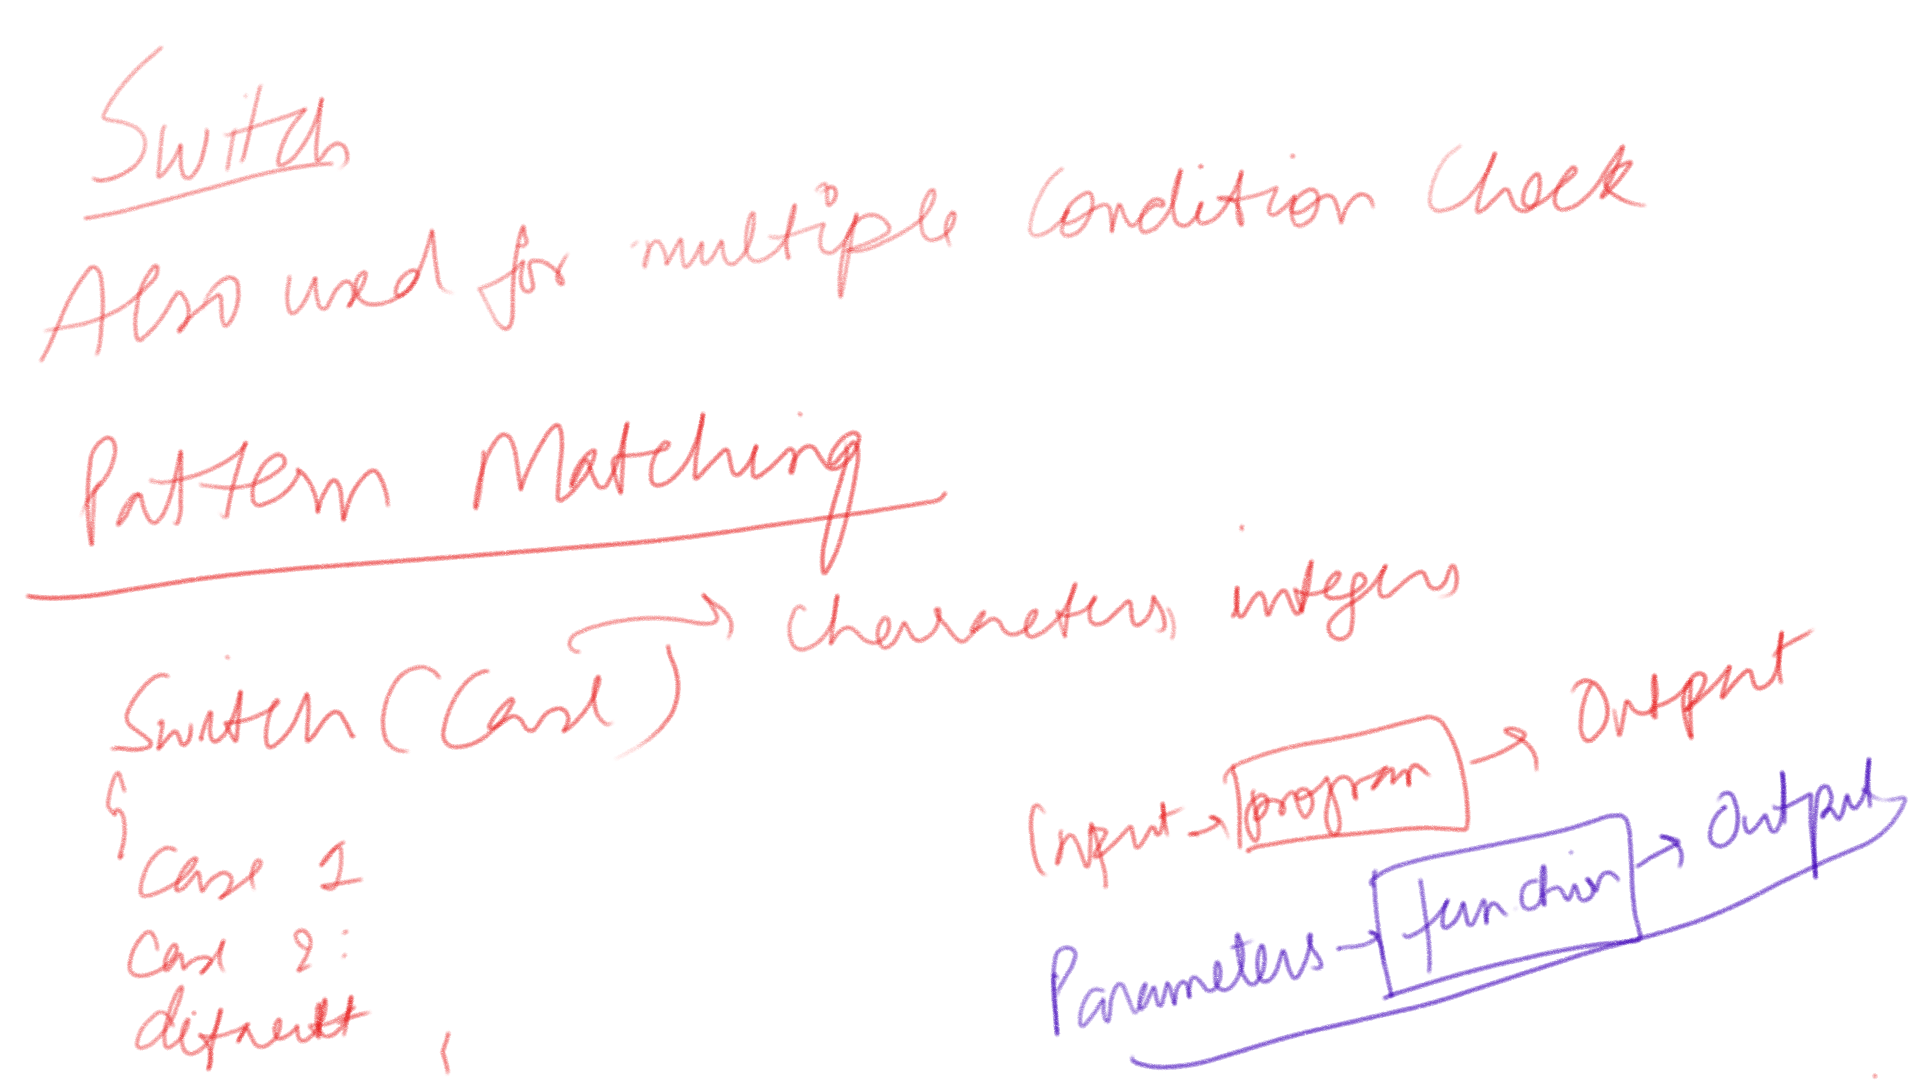 Switch
Also used for multiple Condition Check
Pattern Matching
Switch (Case) → characters, integers
{
Case 1
Case 2:
default
Input → program → Output
Parameters → function → Output